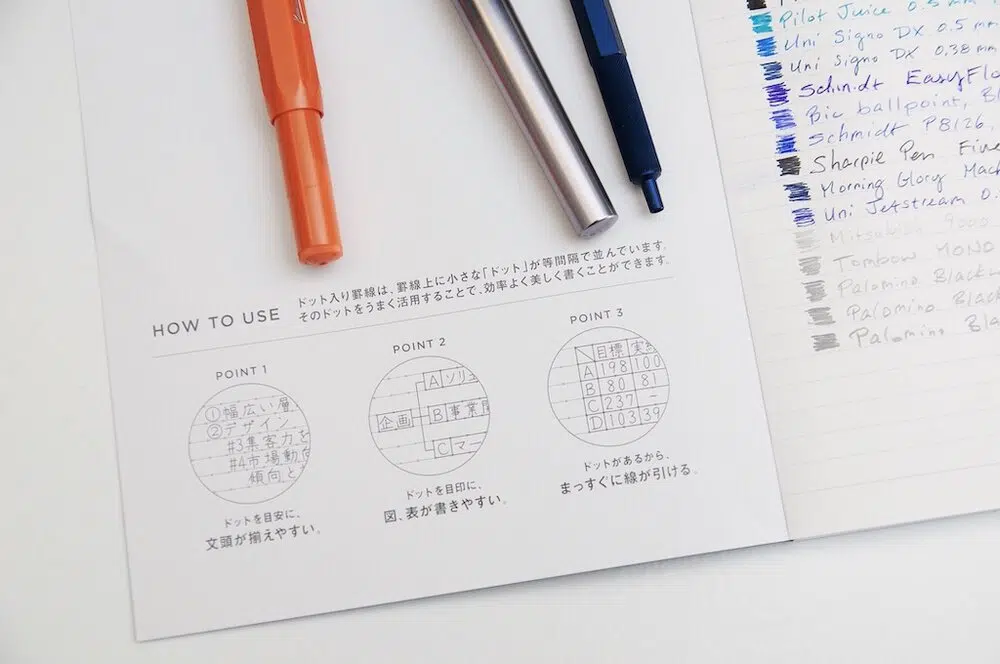 HOW TO USE
ドット入り罫線は、罫線上に小さな「ドット」が等間隔で並んでいます。
そのドットをうまく活用することで、効率よく美しく書くことができます。
POINT 1
①幅広い層
②デザイン
#3集客力を
#4市場動向
傾向と
ドットを目安に、
文頭が揃えやすい。
POINT 2
企画
A ソリュ
B 事業
C マー
ドットを目印に、
図、表が書きやすい。
POINT 3
目標 実績
A 198 100
B 80 81
C 237 –
D 103 39
ドットがあるから、
まっすぐに線が引ける。
Pilot Juice 0.5 mm
Uni Signo DX 0.5 mm
Uni Signo DX 0.38 mm
Schmidt EasyFlo
Bic ballpoint, Bl
Schmidt P8126,
Sharpie Pen Fine
Morning Glory Mach
Uni Jetstream 0.
Mitsubishi 9000
Tombow MONO
Palomino Blackw
Palomino Black
Palomino Bla